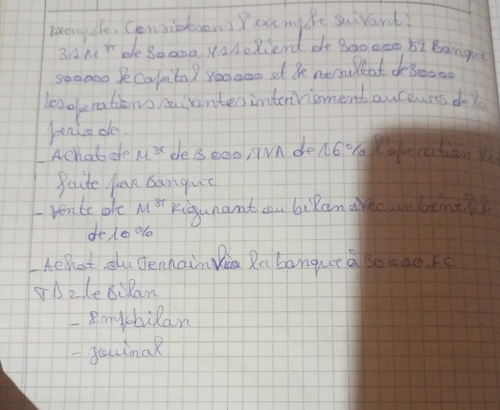 Exemple: Considerons l'exemple suivant:
31 Mse de 30000, 411 client de 300000 52 Banque
500000 le capital 800000 et le resultat de 30000
les operations suivantes interviennent au cours de la
periode.
- Achat de Mse de 5000, TVA de 16% l'operation
faite par banque
- Vente de Mse figurant au bilan avec un bénéfice
de 10%
- Achat du Terrain via la banque à 30000 FC
TD = le Bilan
- bilan
- journal